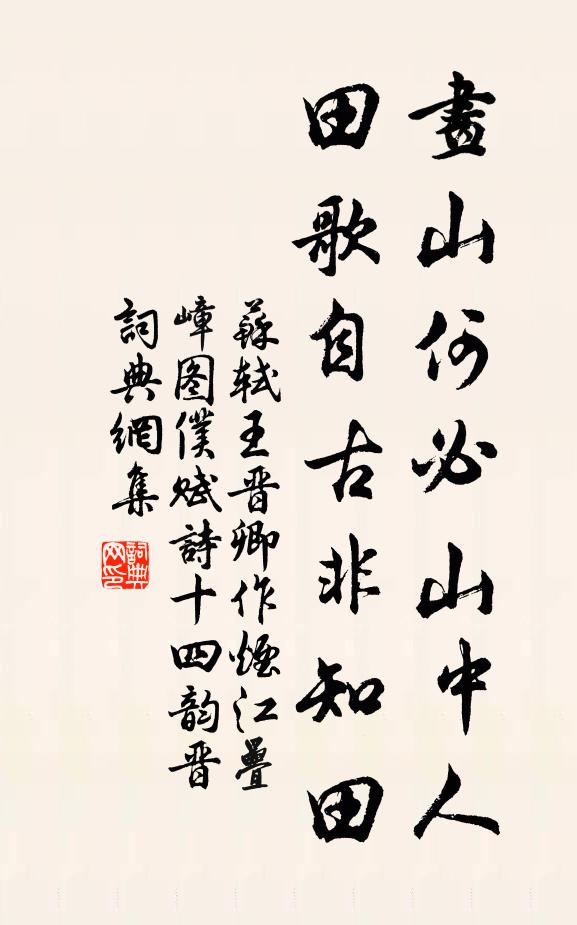 畫山何必山中人
田歌自古非知田
蘇軾王晋卿作煙江疊
嶂图僕賦詩十四韵晋
詞典網集
詞典
网印